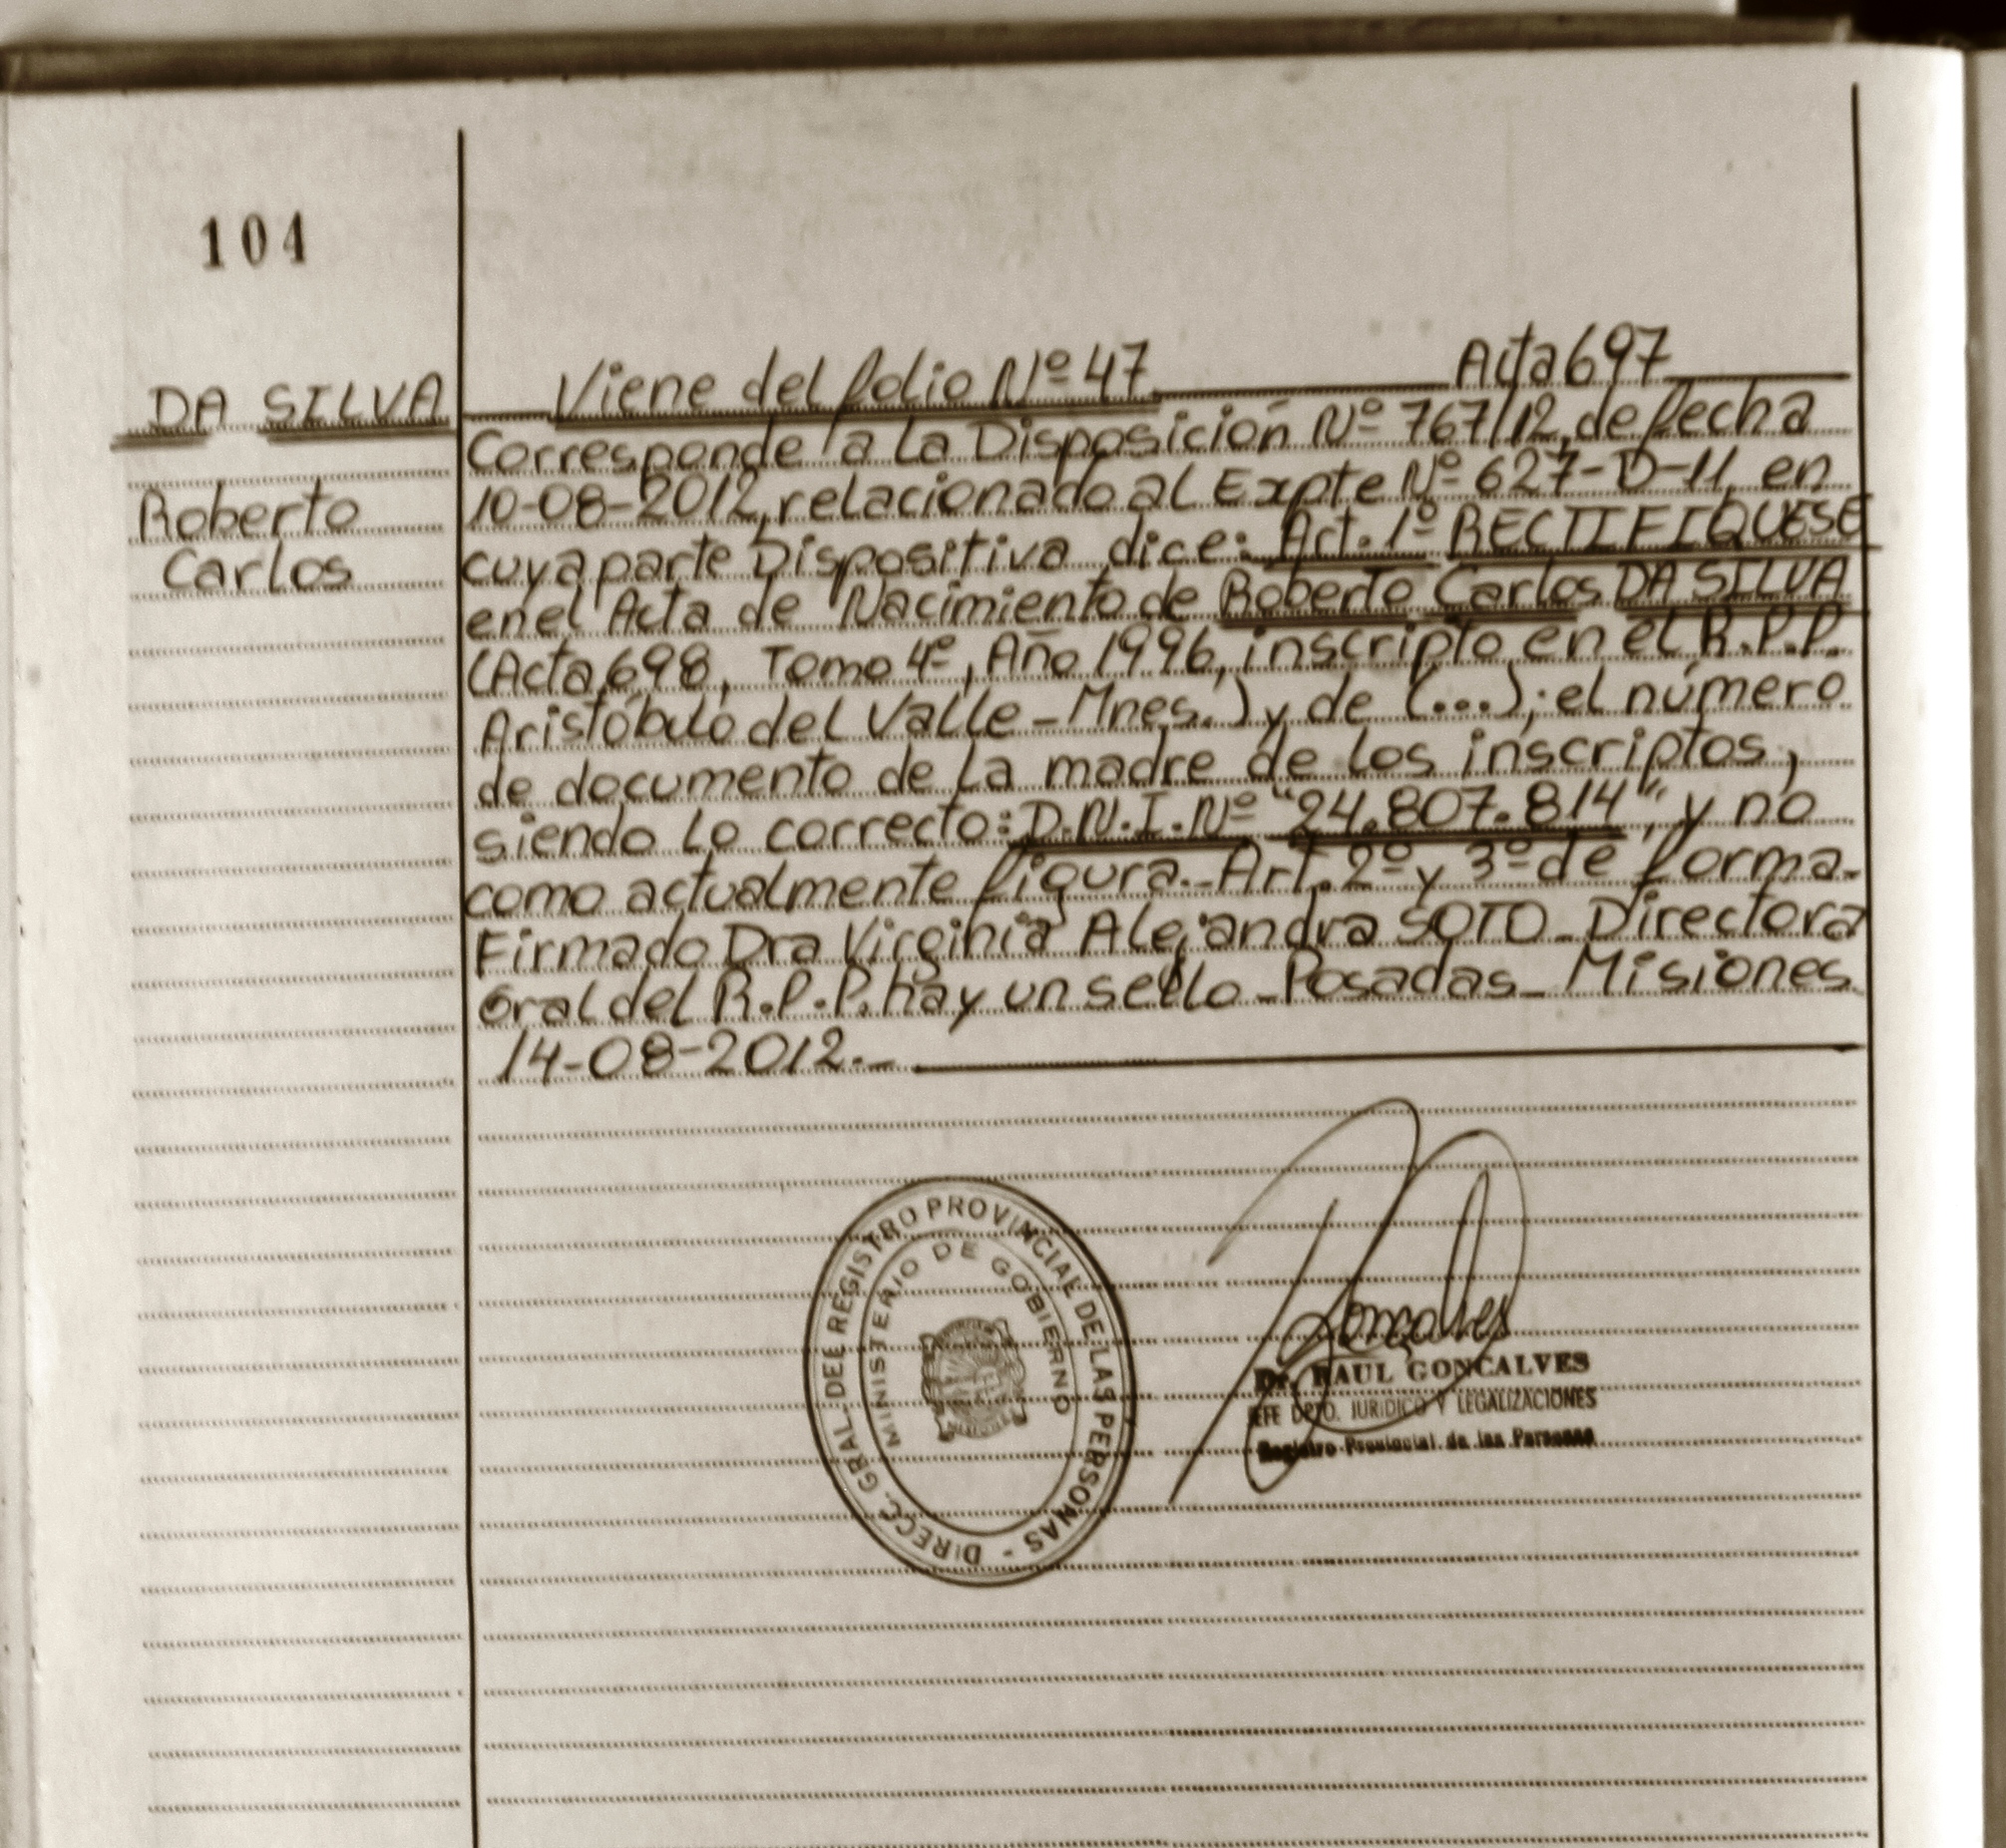 104
DA SILVA
Roberto
Carlos
Viene del folio Nº 47 Acta 697
Corresponde a la Disposición Nº 767/12, de fecha
10-08-2012, relacionado al Expte Nº 627-D-11, en
cuya parte Dispositiva dice: Art. 1º RECTIFIQUESE
en el Acta de Nacimiento de Roberto Carlos DA SILVA
(Acta 698, Tomo 4º, Año 1996, inscripto en el R.P.P.
Aristóbulo del Valle - Mnes.) y de (...); el número
de documento de la madre de los inscriptos,
siendo lo correcto: D.N.I. Nº "24.807.814", y no
como actualmente figura.- Art. 2º y 3º de forma.
Firmado Dra Virginia Alejandra SOTO - Directora
Gral del R.P.P. hay un sello - Posadas - Misiones
14-08-2012.-
DIRECC. GRAL. DEL REGISTRO PROVINCIAL DE LAS PERSONAS -
MINISTERIO DE GOBIERNO
Goncalves
Dr. RAUL GONCALVES
JEFE DPTO. JURIDICO Y LEGALIZACIONES
Registro Provincial de las Personas